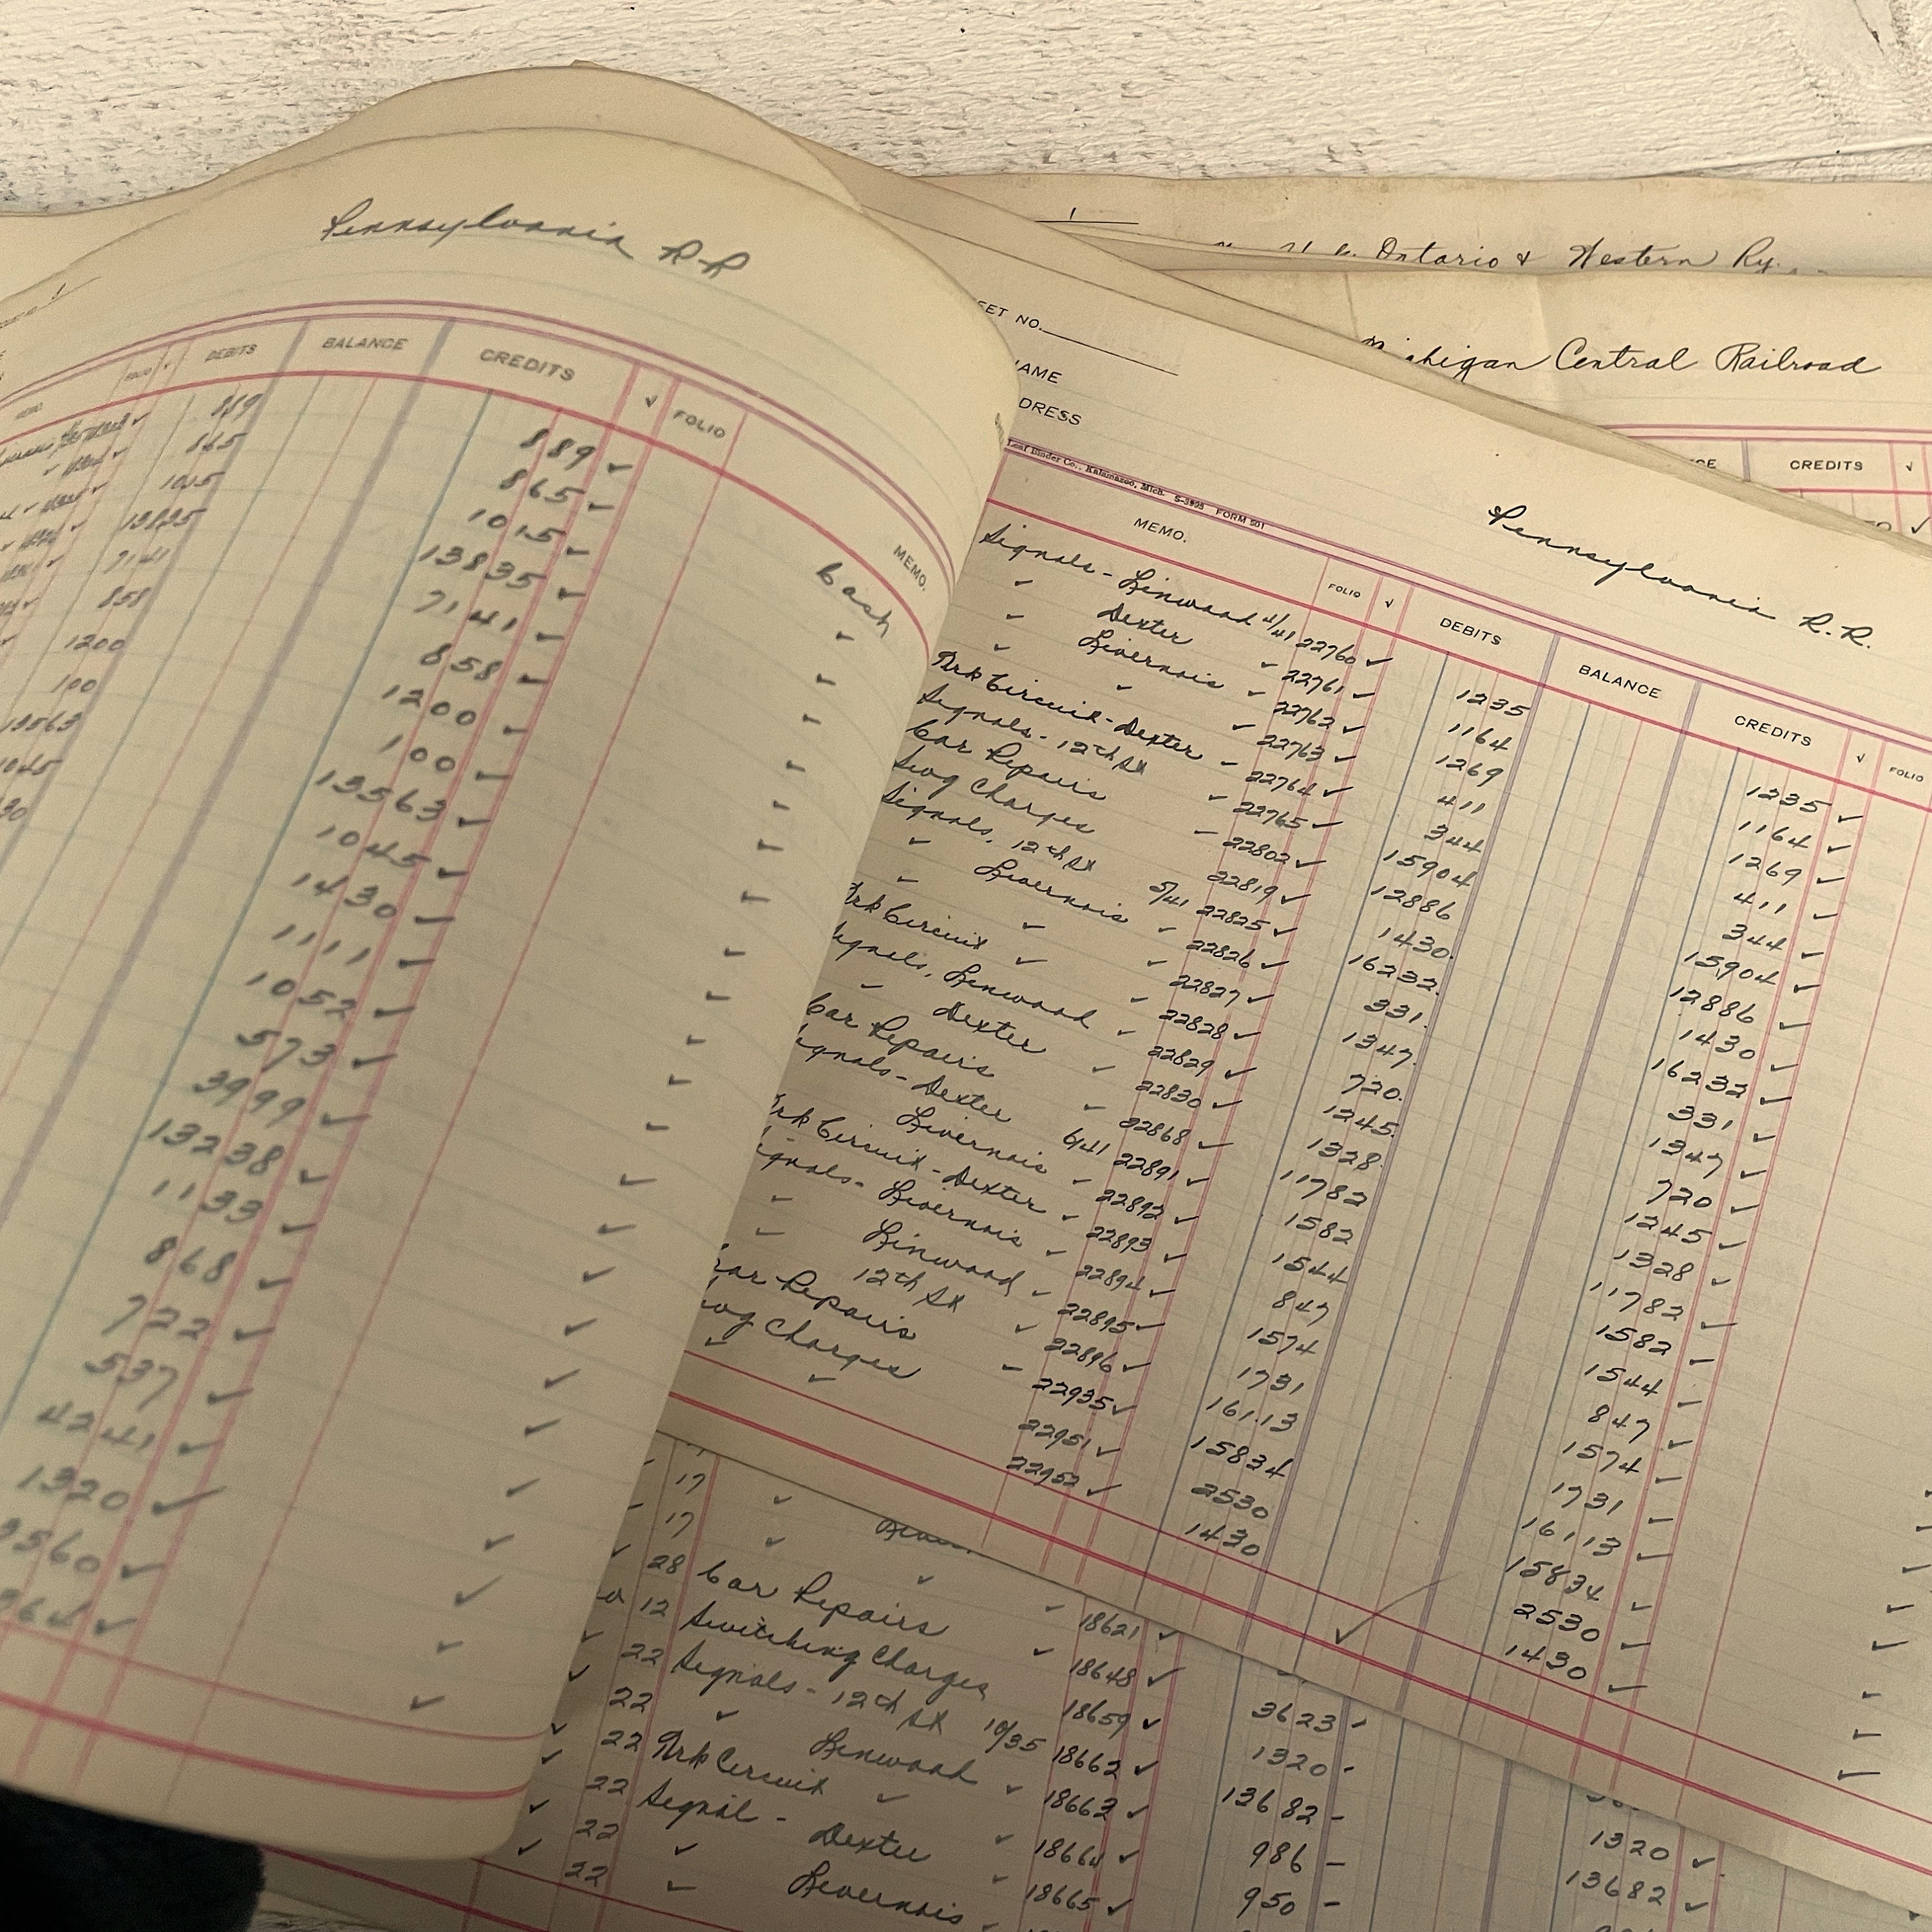 Pennsylvania R-R
DEBITS BALANCE CREDITS √ FOLIO MEMO.
889 889 ✓ Cash
865 865 ✓ ✓
1015 1015 ✓ ✓
13835 13835 ✓ ✓
7141 7141 ✓ ✓
858 858 ✓ ✓
1200 1200 ✓ ✓
100 100 ✓ ✓
13563 13563 ✓ ✓
1045 1045 ✓ ✓
1430 ✓ ✓
1111 ✓ ✓
1052 ✓ ✓
573 ✓ ✓
3999 ✓ ✓
13238 ✓ ✓
1133 ✓ ✓
868 ✓ ✓
722 ✓ ✓
537 ✓ ✓
4241 ✓ ✓
1320 ✓ ✓
9560 ✓ ✓
Ontario & Western Ry.
Michigan Central Railroad
CREDITS √
EET NO.
AME
DRESS
Leaf Binder Co., Kalamazoo, Mich. S-3898 FORM 501
Pennsylvania R.R.
MEMO. FOLIO √ DEBITS BALANCE CREDITS √ FOLIO
Signals - Linwood 4/41 22760 ✓ 1235 1235 ✓
" Dexter " 22761 ✓ 1164 1164 ✓
" Livernois " 22762 ✓ 1269 1269 ✓
" " " 22763 ✓ 411 411 ✓
Trk Circuit - Dexter " 22764 ✓ 344 344 ✓
Signals - 12th St " 22765 ✓ 15904 15904 ✓
Car Repairs " 22802 ✓ 12886 12886 ✓
Swg Charges 22819 ✓ 1430. 1430 ✓
Signals, 12th St 5/41 22825 ✓ 16232. 16232 ✓
" Livernois " 22826 ✓ 331. 331 ✓
" " " 22827 ✓ 1347. 1347 ✓
Trk Circuit " " 22828 ✓ 720. 720 ✓
Signals, Linwood " 22829 ✓ 1245. 1245 ✓
" Dexter " 22830 ✓ 1328. 1328 ✓
Car Repairs " 22868 ✓ 11782 11782 ✓
ignals - Dexter 6/41 22891 ✓ 1582 1582 ✓
Livernois " 22892 ✓ 1544 1544 ✓
Trk Circuit - Dexter " 22893 ✓ 847 847 ✓
ignals - Livernois " 22894 ✓ 1574 1574 ✓
" Linwood " 22895 ✓ 1731 1731 ✓
" 12th St " 22896 ✓ 16113 16113 ✓
Car Repairs " 22935 ✓ 15834 15834 ✓
wg Charges 22951 ✓ 2530 2530 ✓
" " 22952 ✓ 1430 1430 ✓
17 "
17 "
28 Car Repairs " 18621 ✓
12 Switching Charges 18648 ✓ 3623 -
22 Signals - 12th St 10/35 18659 ✓ 1320 -
22 " Linwood " 18662 ✓ 13682 - 1320 ✓
22 Trk Circuit " " 18663 ✓ 986 - 13682 ✓
22 Signal - Dexter " 18664 ✓ 950 -
22 " Livernois " 18665 ✓
22